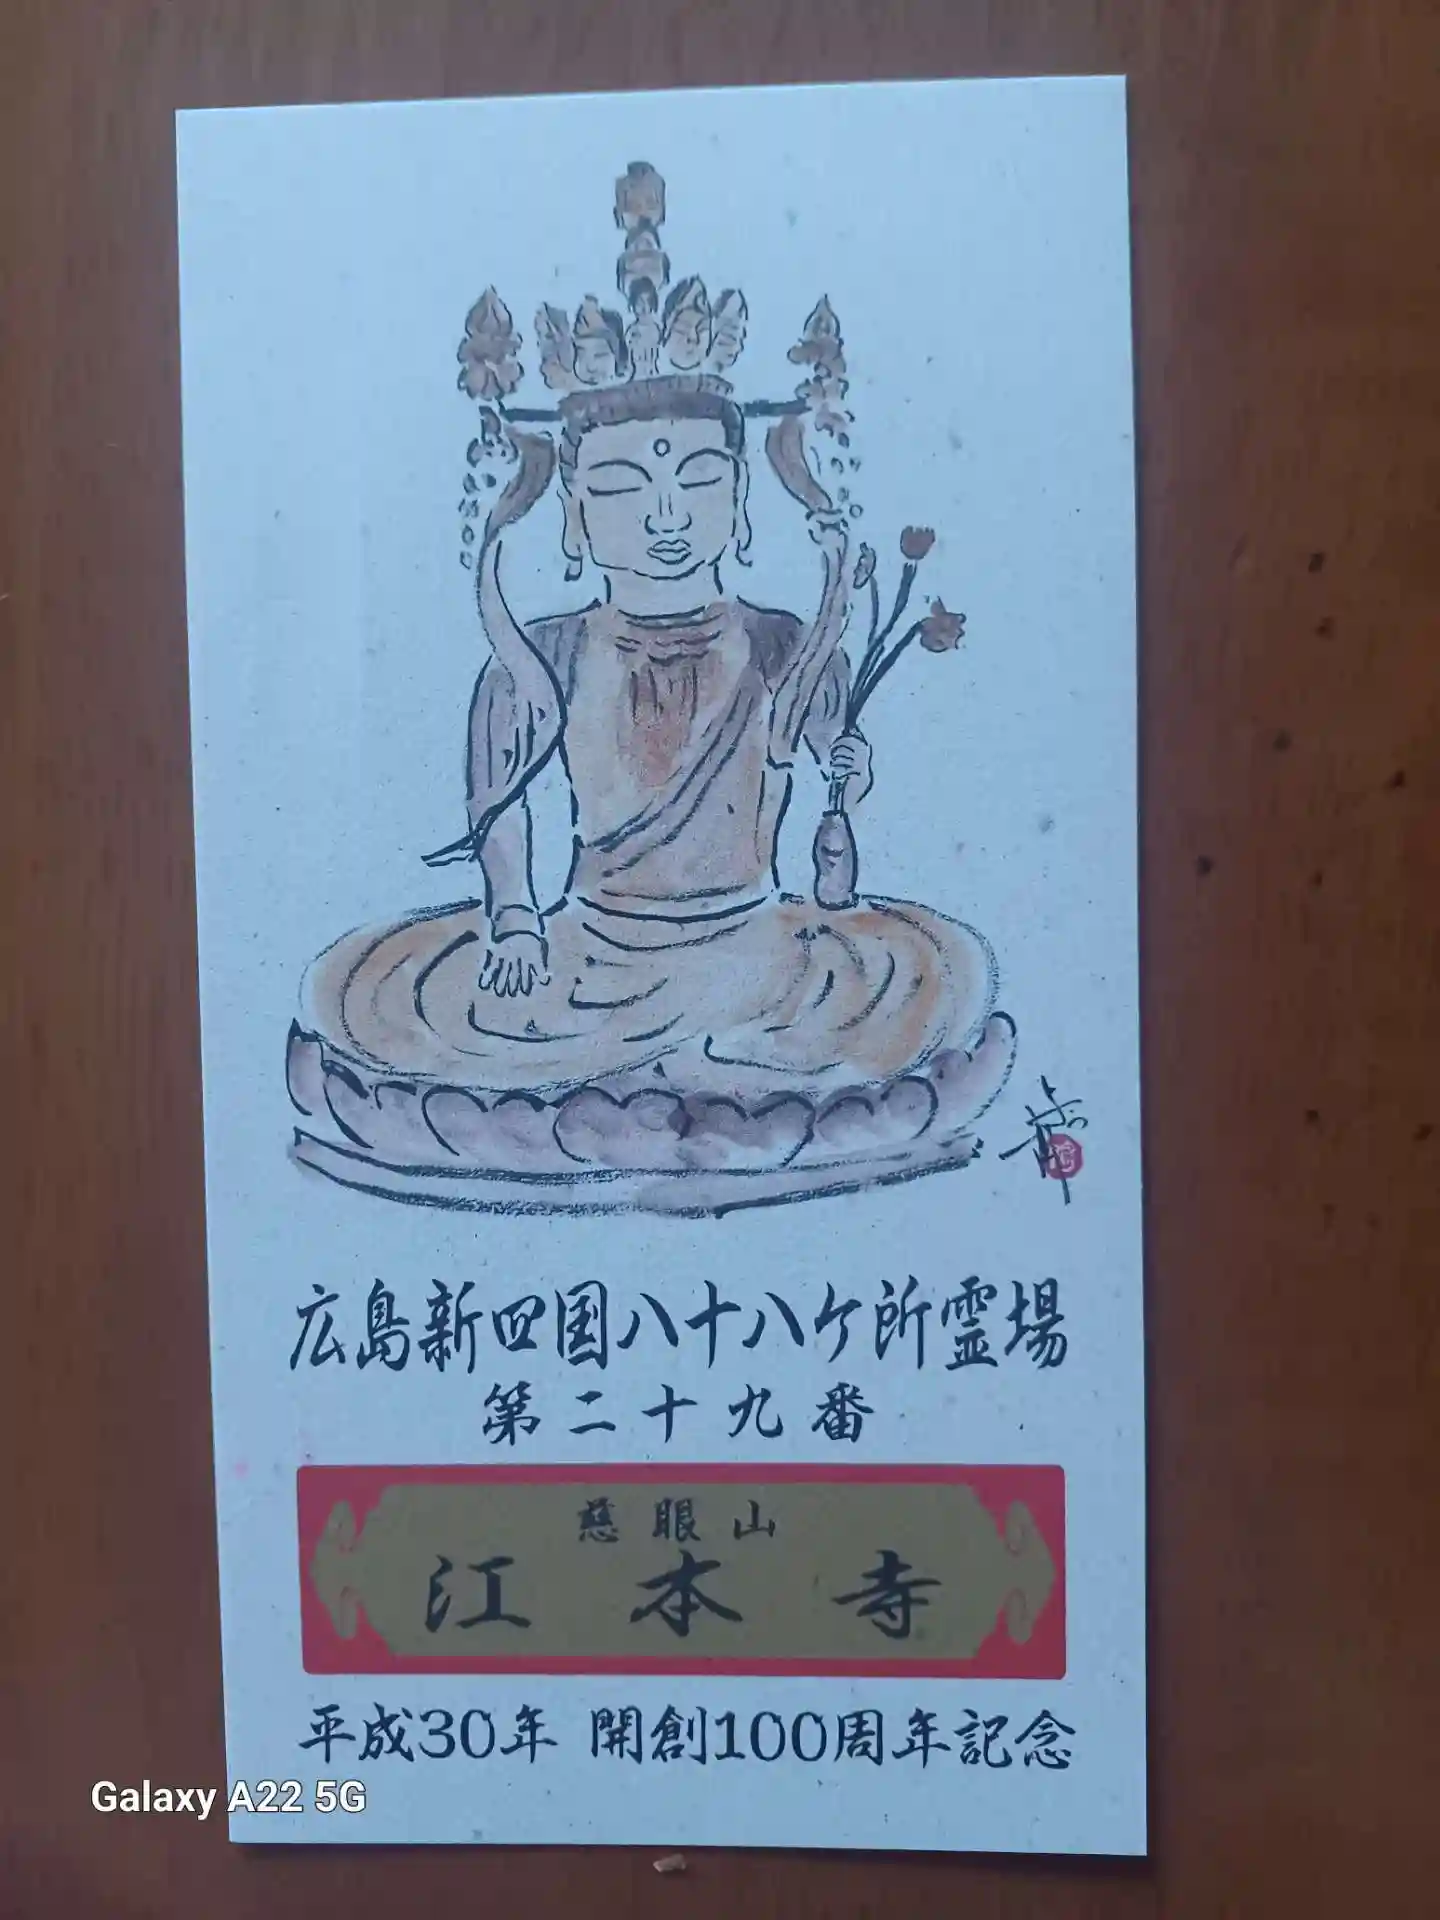 広島新四国八十八ケ所霊場
第二十九番
慈眼山
江本寺
平成30年 開創100周年記念
Galaxy A22 5G